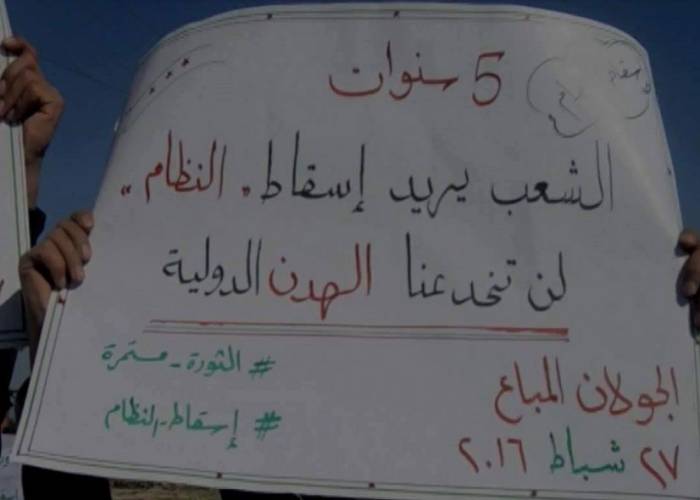 5 سنوات
الشعب يريد إسقاط "النظام"
لن تخدعنا الهدن الدولية
# الثورة_مستمرة
# إسقاط_النظام
الجولان المباع
٢٧ شباط ٢٠١٦